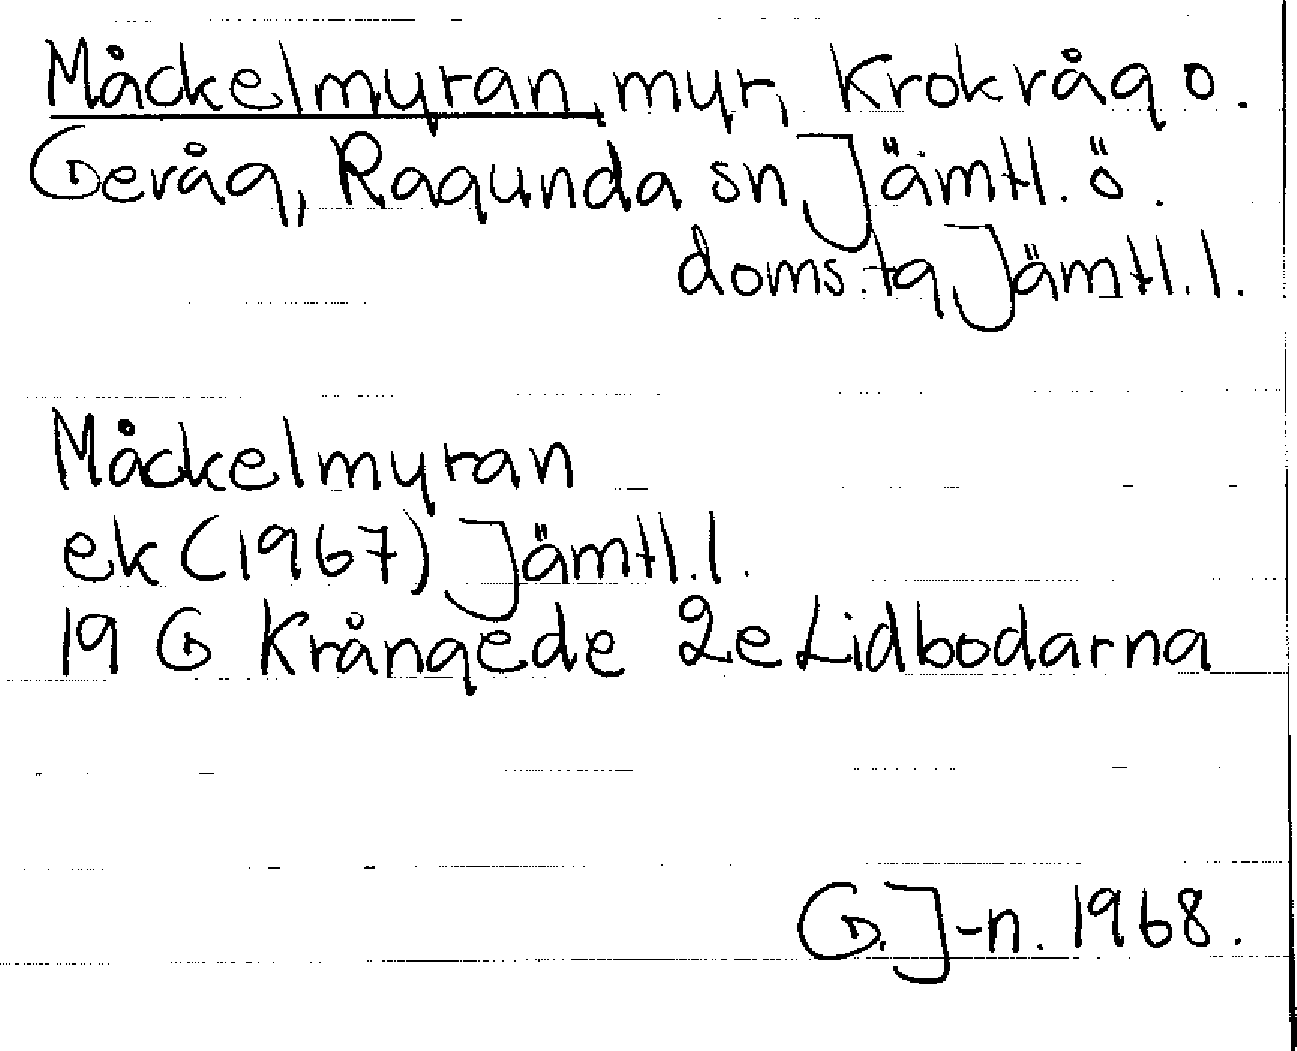 Måckelmyran, myr, Krokvåg o.
Gevåg, Ragunda sn Jämtl. ö.
doms. tg Jämtl. l.
Måckelmyran
ek (1967) Jämtl. l.
19 G Krångede 2e Lidbodarna
G. J-n. 1968.